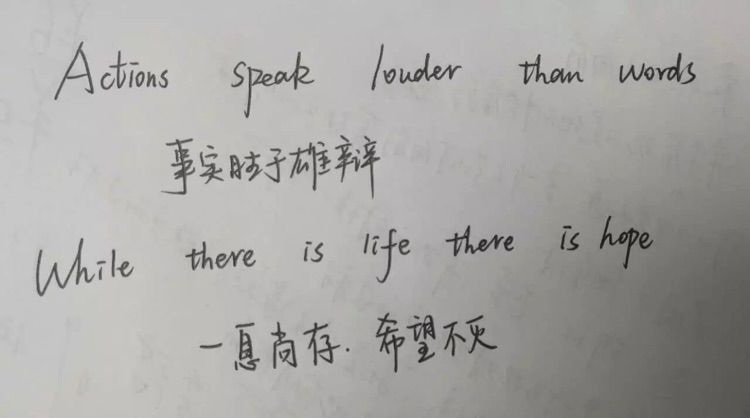 Actions speak louder than words
事实胜于雄辩
While there is life there is hope
一息尚存.希望不灭